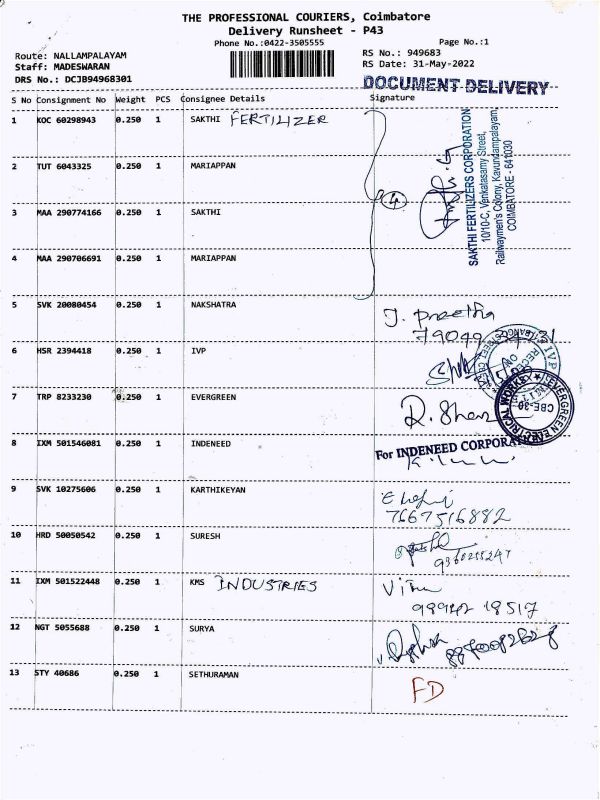 THE PROFESSIONAL COURIERS, Coimbatore
Delivery Runsheet - P43
Phone No.:0422-3505555
Page No.:1
Route: NALLAMPALAYAM
RS No.: 949683
Staff: MADESWARAN
RS Date: 31-May-2022
DRS No.: DCJB94968301
DOCUMENT DELIVERY
S No Consignment No Weight PCS Consignee Details Signature
1 KOC 60298943 0.250 1 SAKTHI FERTILIZER
SAKTHI FERTILIZERS CORPORATION
10/10-C, Venkatasamy Street,
Railwaymen's Colony, Kavundampalayam,
COIMBATORE - 641030
2 TUT 6043325 0.250 1 MARIAPPAN
4
3 MAA 290774166 0.250 1 SAKTHI
4 MAA 290706691 0.250 1 MARIAPPAN
5 SVK 20080454 0.250 1 NAKSHATRA J. Preetha
6 HSR 2394418 0.250 1 IVP
IVP
7 TRP 8233230 0.250 1 EVERGREEN
EVERGREEN ELECTRICAL WORKS
CBE-30
8 IXM 501546081 0.250 1 INDENEED
For INDENEED CORPORA
9 SVK 10275606 0.250 1 KARTHIKEYAN
7667516882
10 HRD 50050542 0.250 1 SURESH
11 IXM 501522448 0.250 1 KMS INDUSTRIES
99942 18517
12 NGT 5055688 0.250 1 SURYA
13 STY 40686 0.250 1 SETHURAMAN FD